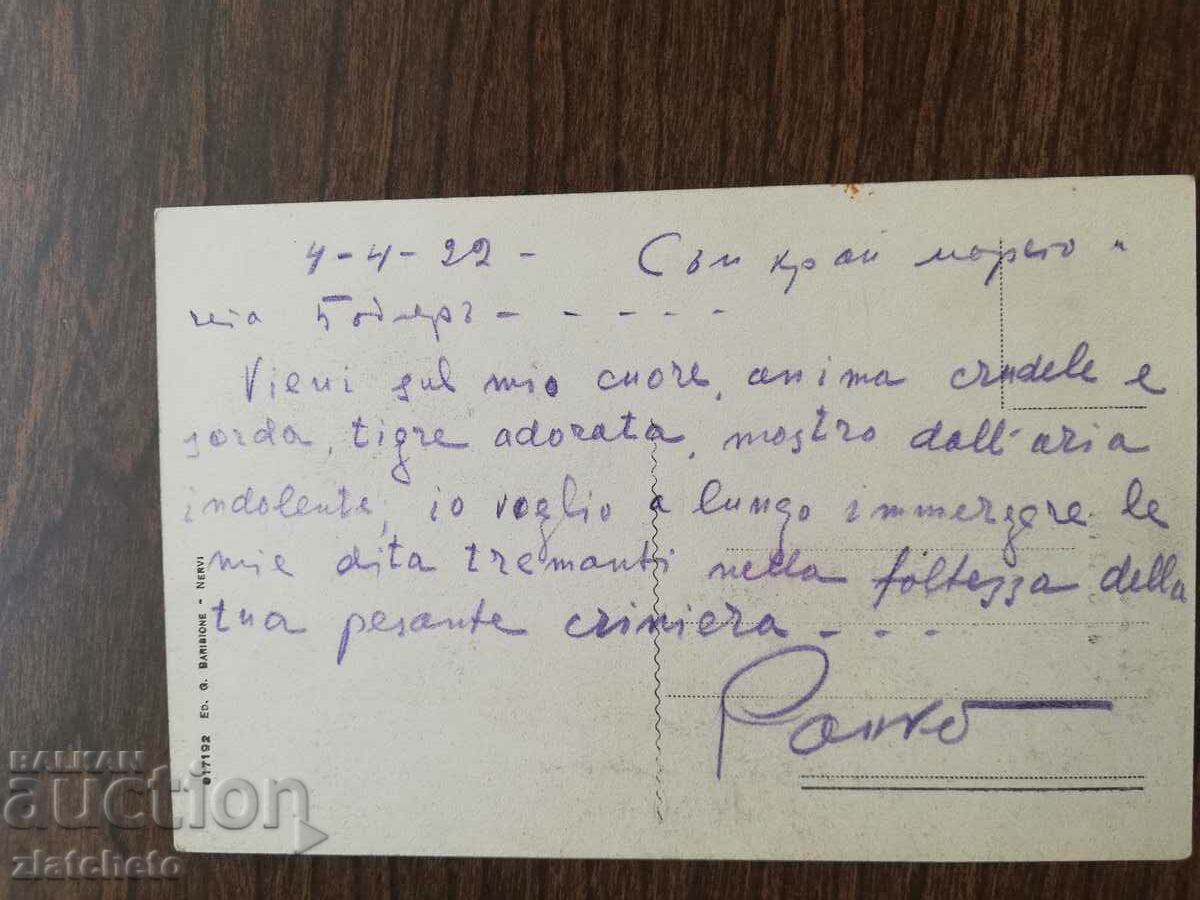 4-4-22 - Съм край морето и
чета Бодлеръ - - - - -
Vieni sul mio cuore, anima crudele e
sorda, tigre adorata, mostro dall'aria
indolente, io voglio a lungo immergere le
mie dita tremanti nella foltezza della
tua pesante criniera - - -
817192 ED. G. BARIBIONE - NERVI
BALKAN
auction
zlatcheto